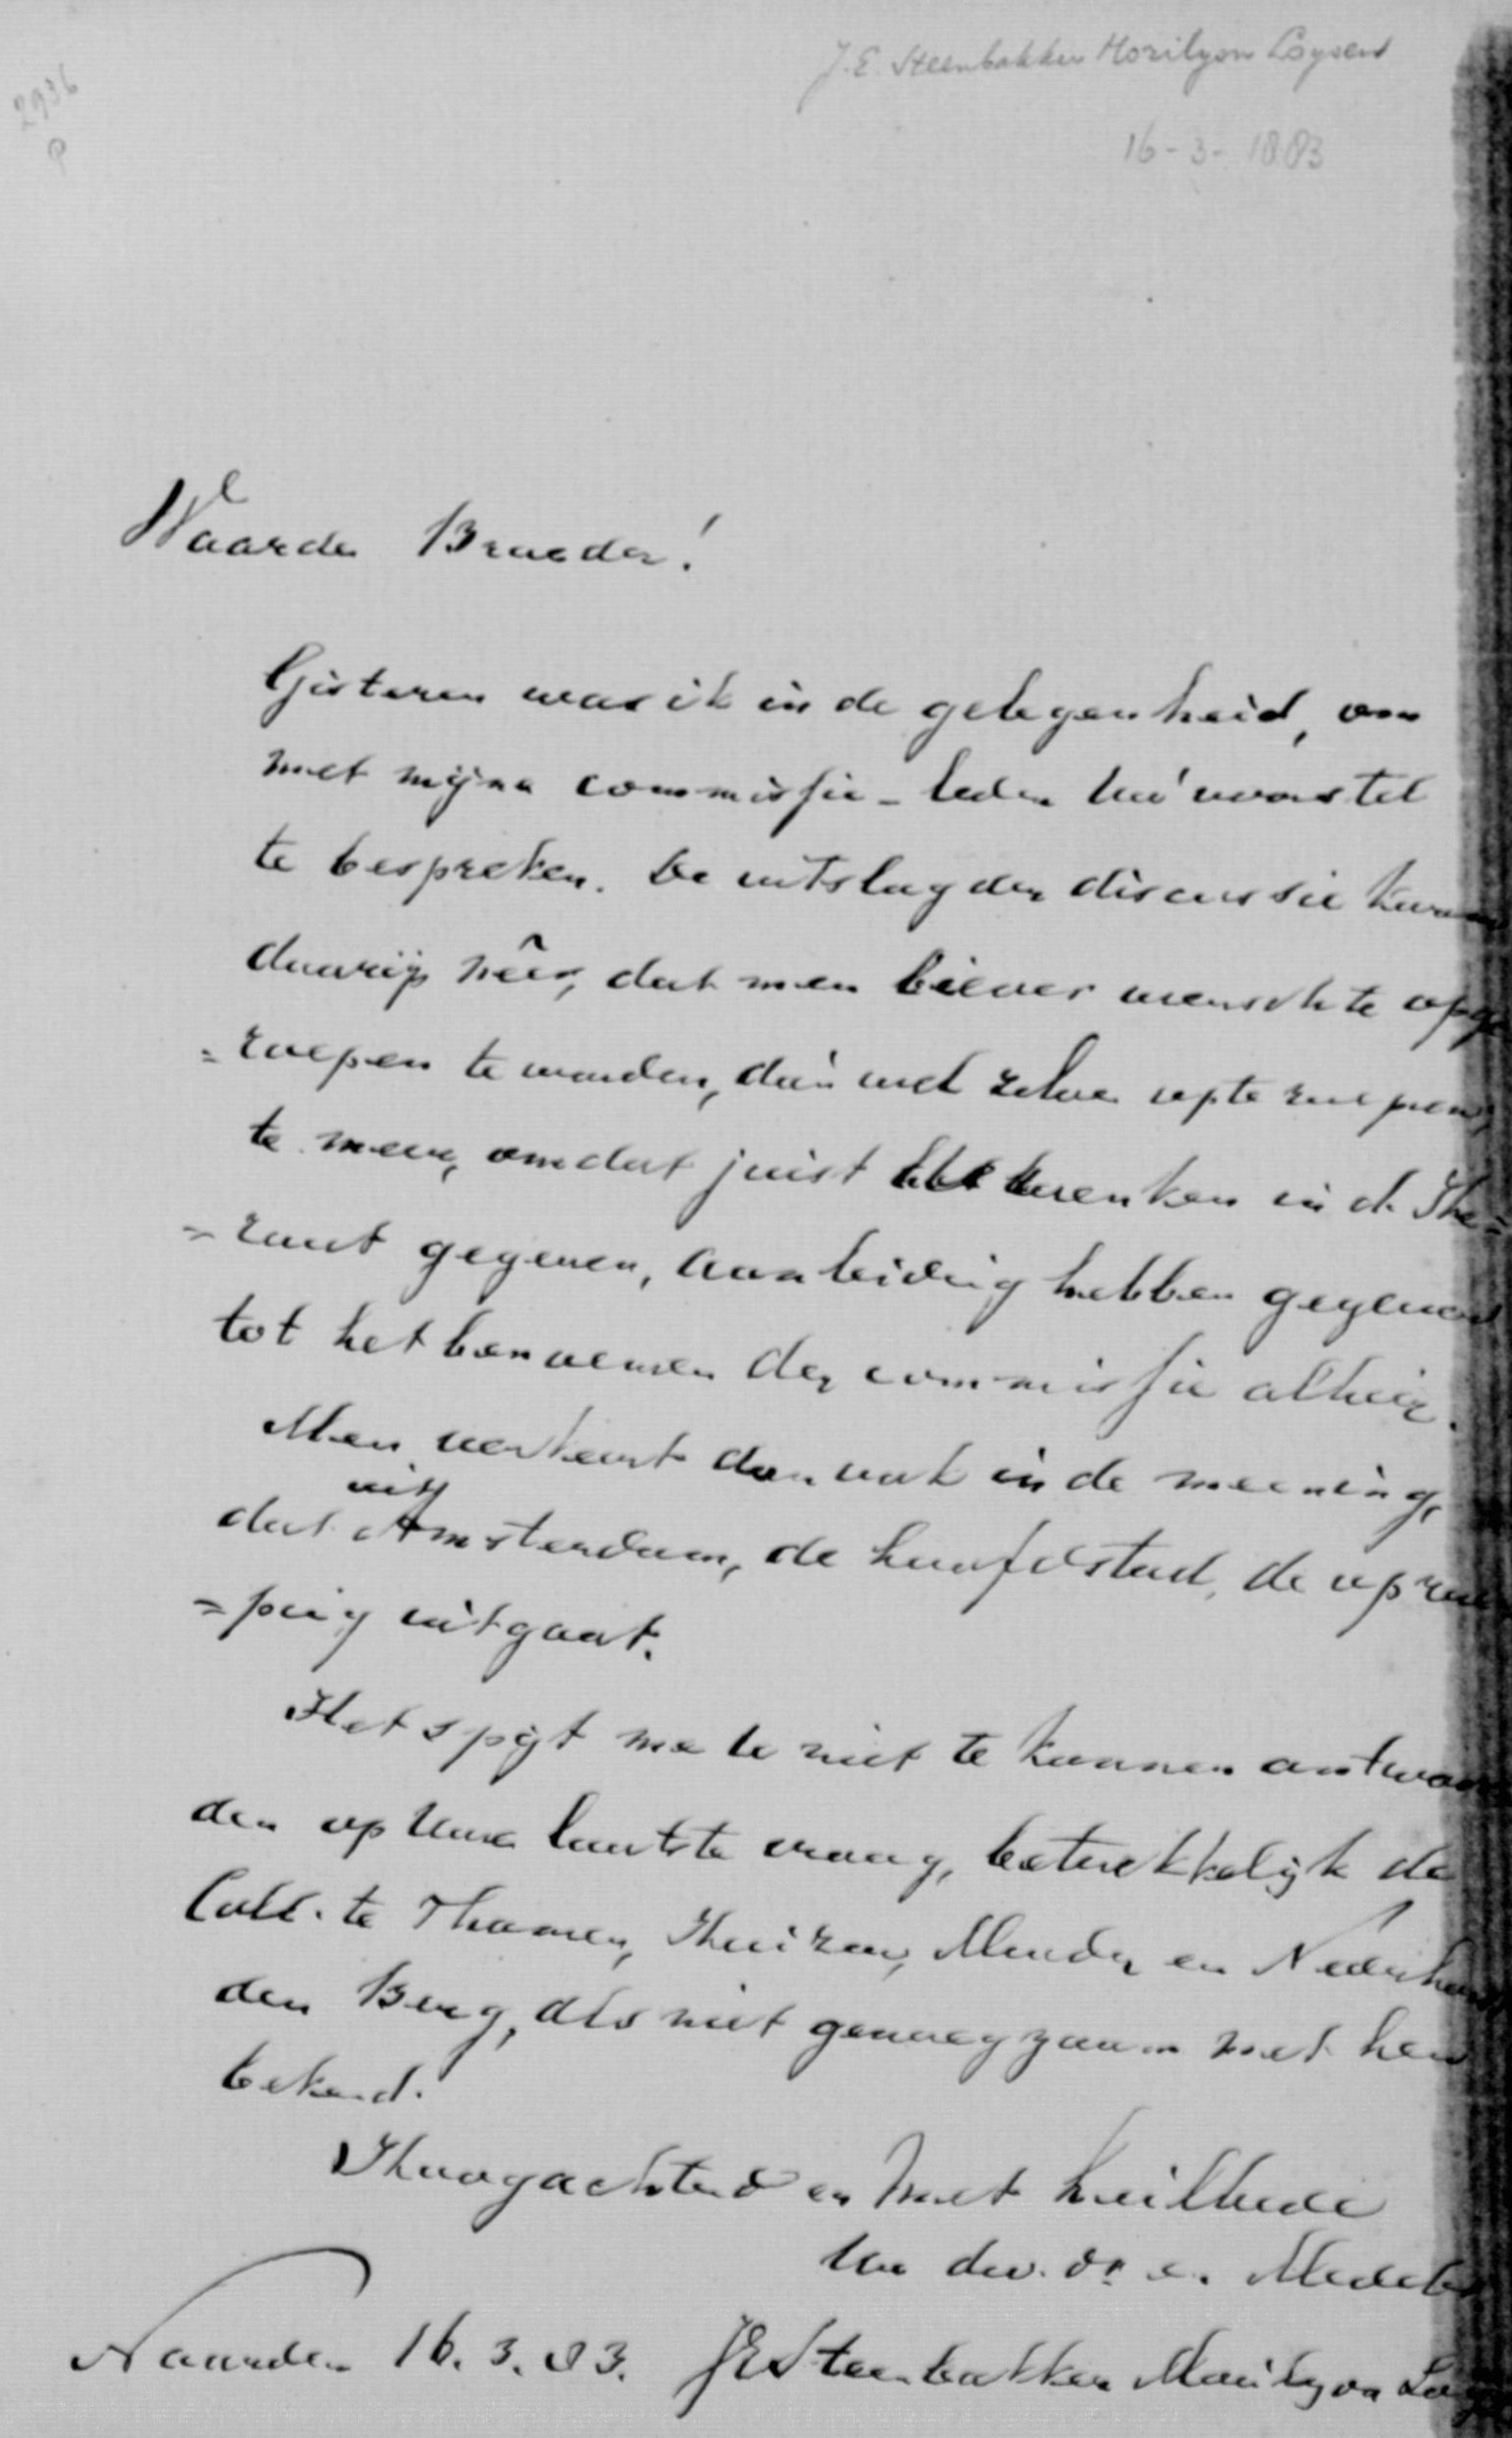 J. E. Steenbakker Morilyon Loysen
16-3-1883
2936
P
Waarde Broeder!
Gisteren was ik in de gelegenheid, om
met mijne commissie-leden uw voorstel
te bespreken. De uitslag der discussie kwam
daarop neêr, dat men liever wenschte opge
=roepen te worden, dan wel zelve op te roepen,
te meer, omdat juist de wenken in de He=
=raut gegeven, aanleiding hebben gegeven
tot het benoemen der commissie alhier.
Men verkeert dan ook in de meening,
dat uit Amsterdam, de hoofdstad, de oproe
=ping uitgaat.
Het spijt me te niet te kunnen antwoor
den op Uwe laatste vraag, betrekkelijk de
Coll. te Thamen, Huizen, Muiden en Nederhorst
den Berg, als niet genoegzaam met hen
bekend.
Hoogachtend en met heilbede
Uw dw. dr. en Medebr
Naarden 16.3.83. JESteenbakker Morilyon Loy